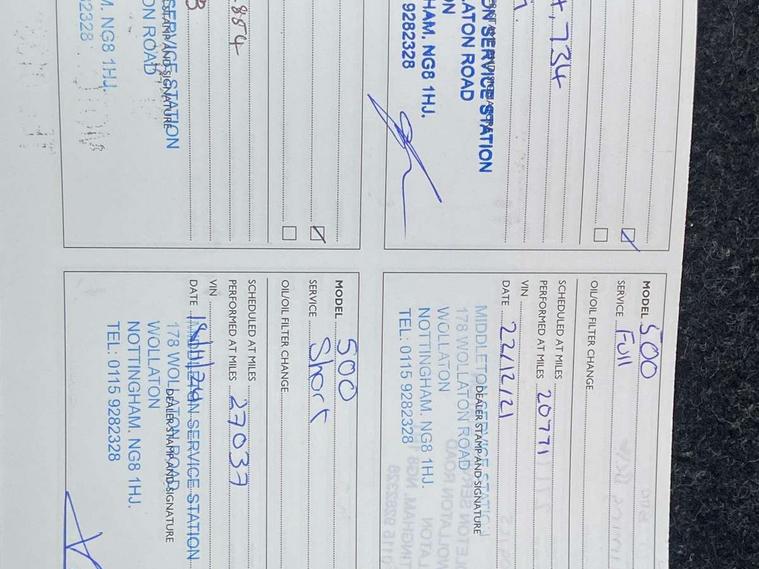 4,734
ON SERVICE STATION
LATON ROAD
ON
HAM. NG8 1HJ.
9282328
MODEL 500
SERVICE Full
OIL/OIL FILTER CHANGE
SCHEDULED AT MILES
PERFORMED AT MILES 20771
VIN
DATE 22/12/21
DEALER STAMP AND SIGNATURE
MIDDLETON SERVICE STATI
178 WOLLATON ROAD
WOLLATON
NOTTINGHAM. NG8 1HJ.
TEL: 0115 9282328
854
SERVICE STATION
STAMP AND SIGNATURE
ON ROAD
M. NG8 1HJ.
2328
MODEL 500
SERVICE Short
OIL/OIL FILTER CHANGE
SCHEDULED AT MILES
PERFORMED AT MILES 27037
VIN
DATE
DEALER STAMP AND SIGNATURE
SERVICE STATION
178 WOL
WOLLATON
NOTTINGHAM. NG8 1HJ.
TEL: 0115 9282328